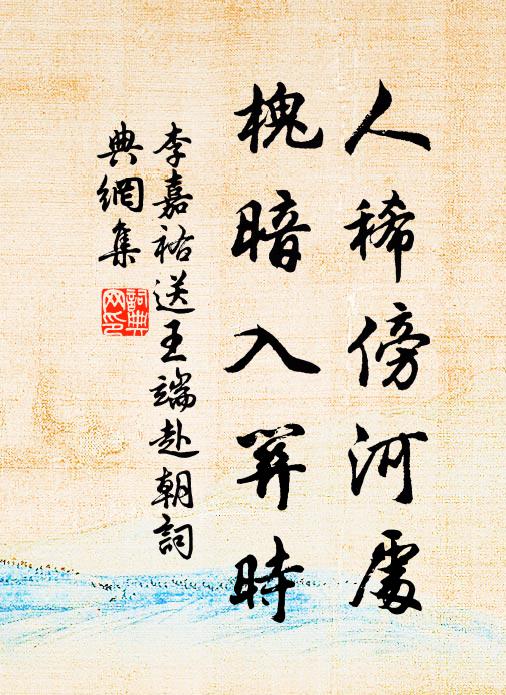 人稀傍河處
槐暗入關時
李嘉祐送王端赴朝詞
典網集
詞典
网印